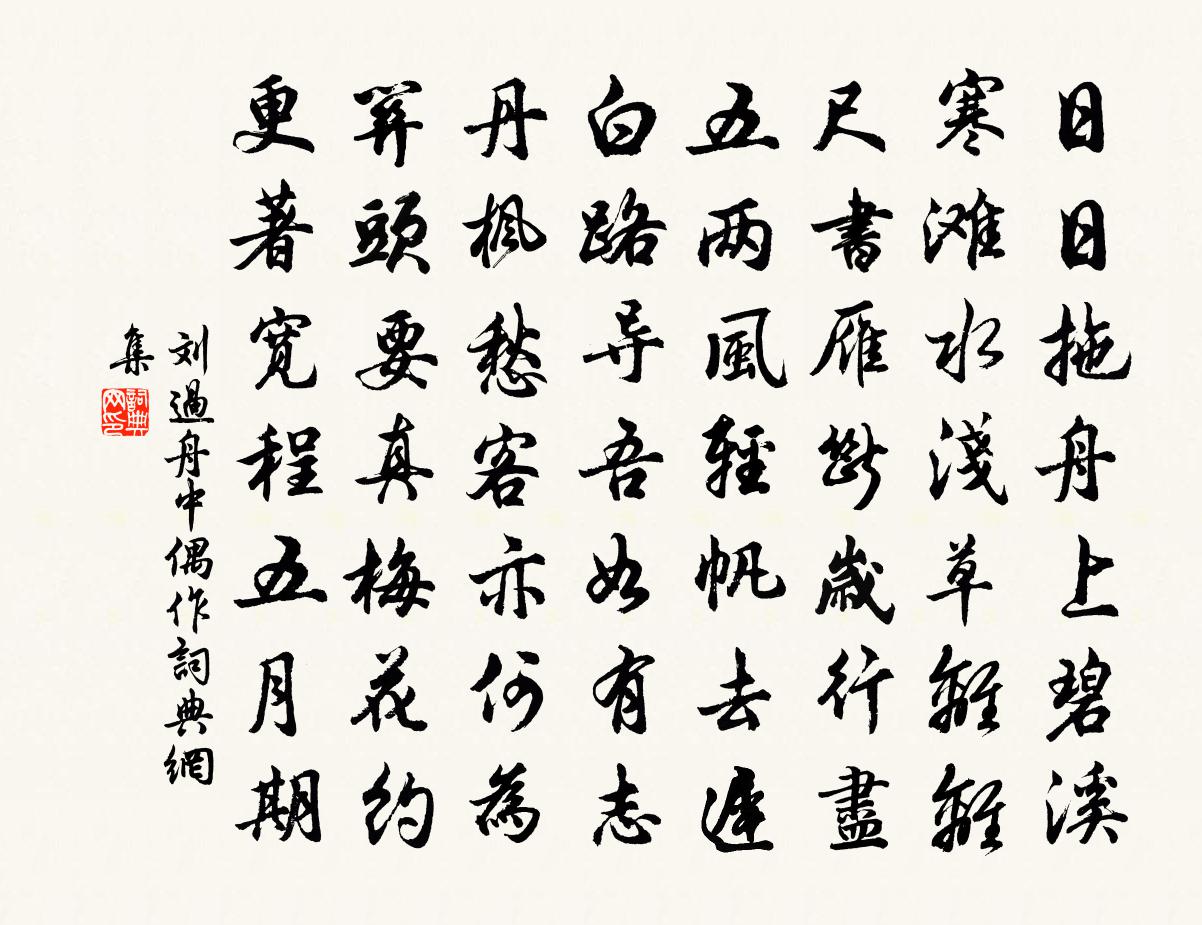 日日拖舟上碧溪
寒滩水淺草離離
尺書雁斷歲行盡
五两風輕帆去遲
白路导吾如有志
丹楓愁客亦何為
筭頭要真梅花約
更著寬程五月期
刘過舟中偶作詞典網
集
詞典网印